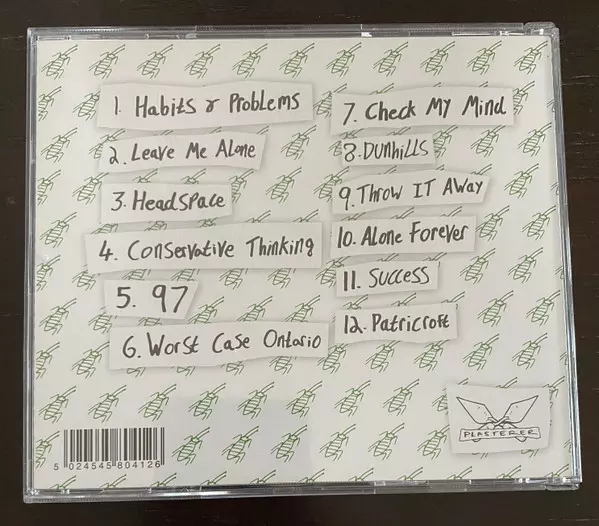 1. Habits & Problems
2. Leave Me Alone
3. Headspace
4. Conservative Thinking
5. 97
6. Worst Case Ontario
7. Check My Mind
8. Dunhills
9. Throw It Away
10. Alone Forever
11. Success
12. Patricroft
PLASTERER
5 024545 804126